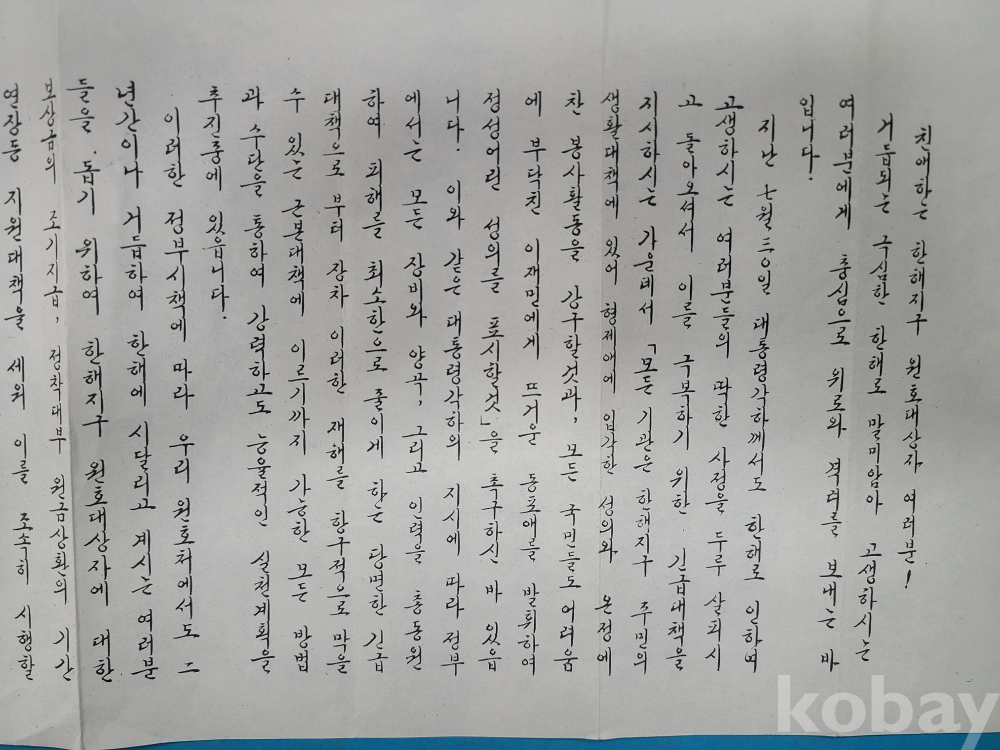 친애하는 한해지구 원호대상자 여러분!
거듭되는 극심한 한해로 말미암아 고생하시는
여러분에게 충심으로 위로와 격려를 보내는 바
입니다.
지난 七월 三〇일 대통령각하께서도 한해로 인하여
고생하시는 여러분들의 딱한 사정을 두루 살피시
고 돌아오셔서 이를 극복하기 위한 긴급대책을
지시하시는 가운데서 「모든 기관은 한해지구 주민의
생활대책에 있어 형제애에 입각한 성의와 온정에
찬 봉사활동을 강구할것과, 모든 국민들도 어려움
에 부닥친 이재민에게 뜨거운 동포애를 발휘하여
정성어린 성의를 표시할것」을 촉구하신 바 있읍
니다. 이와 같은 대통령각하의 지시에 따라 정부
에서는 모든 장비와 양곡, 그리고 인력을 총동원
하여 피해를 최소한으로 줄이게 하는 당면한 긴급
대책으로 부터 장차 이러한 재해를 항구적으로 막을
수 있는 근본대책에 이르기까지 가능한 모든 방법
과 수단을 통하여 강력하고도 능율적인 실천계획을
추진중에 있읍니다.
이러한 정부시책에 따라 우리 원호처에서도 二
년간이나 거듭하여 한해에 시달리고 계시는 여러분
들을 돕기 위하여 한해지구 원호대상자에 대한
보상금의 조기지급, 정착대부 원금상환의 기간
연장등 지원대책을 세워 이를 조속히 시행할
kobay